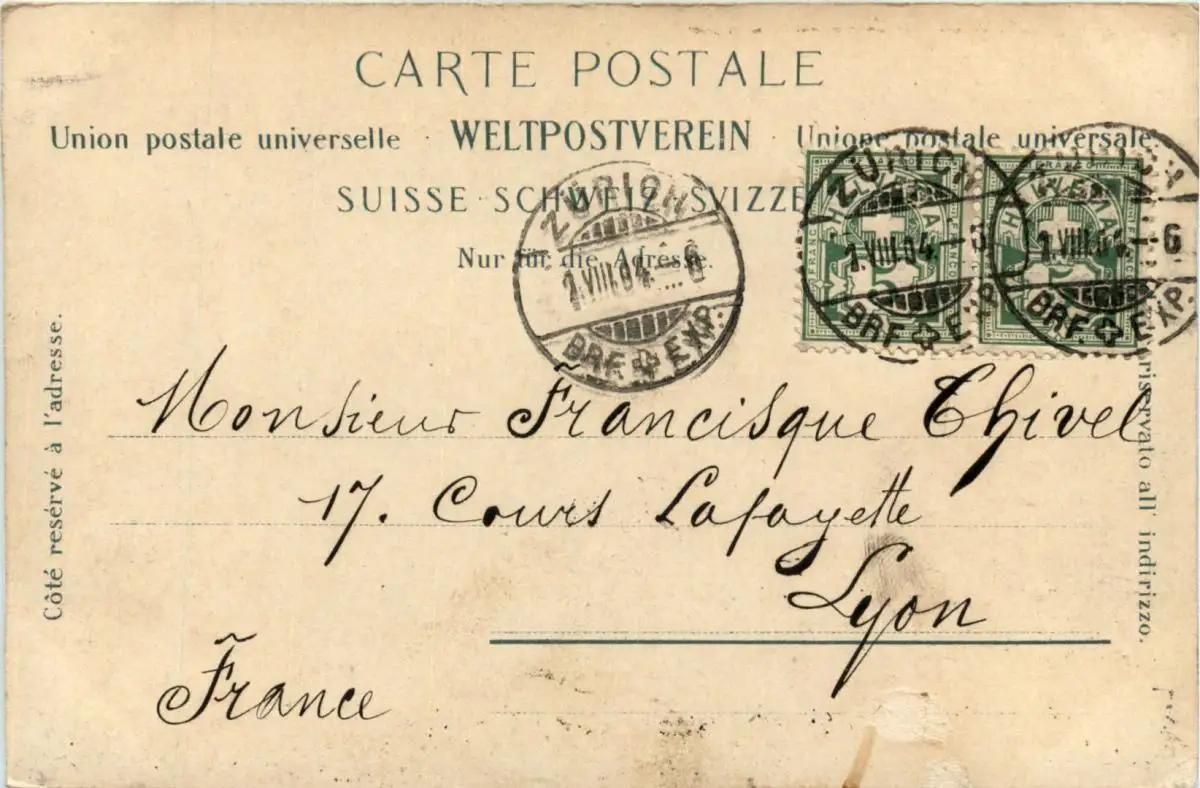 CARTE POSTALE
Union postale universelle · WELTPOSTVEREIN · Unione postale universale
SUISSE · SCHWEIZ · SVIZZE
Nur für die Adresse.
ZÜRICH
1.VIII.04.–6
BRF. EXP.
ZÜRICH
1.VIII.04.–
BRF. EXP.
FRANCO
HELVETIA
5
6
BRF. EXP.
Côté resérvé à l'adresse.
riservato all' indirizzo.
Monsieur Francisque Thivel
17. Cours Lafayette
Lyon
France